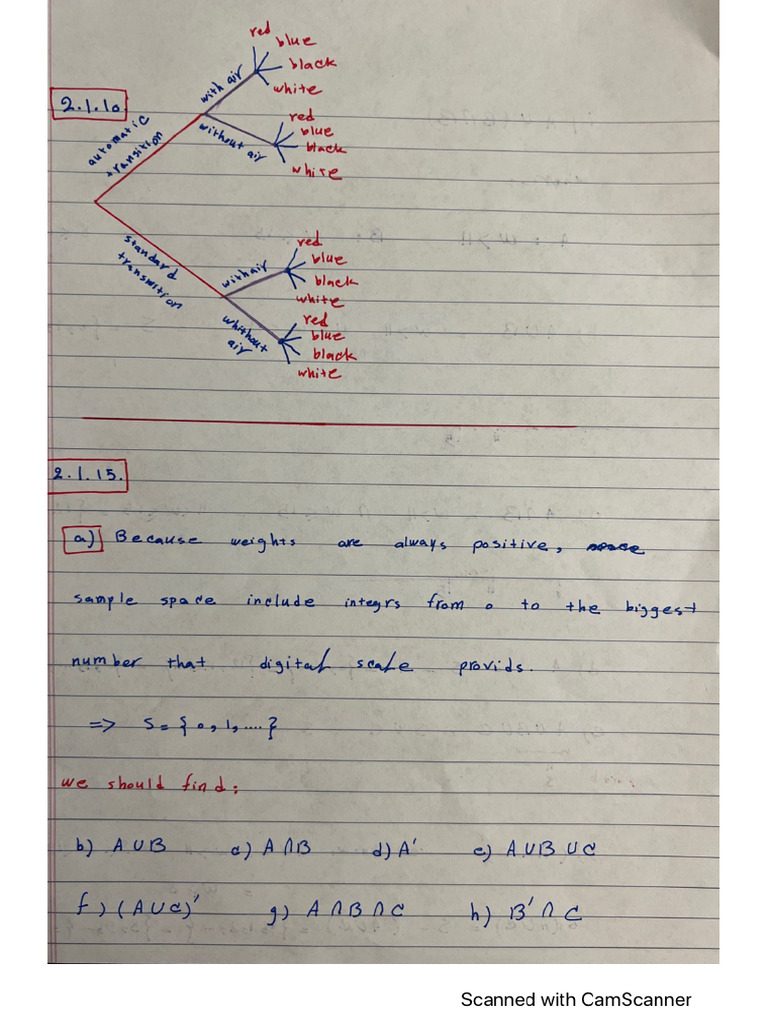 2.1.10
automatic
transition
with air
red
blue
black
white
without air
red
blue
black
white
standard
transmition
with air
red
blue
black
white
whithout
air
red
blue
black
white
2.1.15.
a) Because weights are always positive,
sample space include integrs from 0 to the biggest
number that digital scale provids.
=> S = {0, 1, ....}
we should find:
b) A ∪ B c) A ∩ B d) A' e) A ∪ B ∪ C
f) (A ∪ C)' g) A ∩ B ∩ C h) B' ∩ C
Scanned with CamScanner